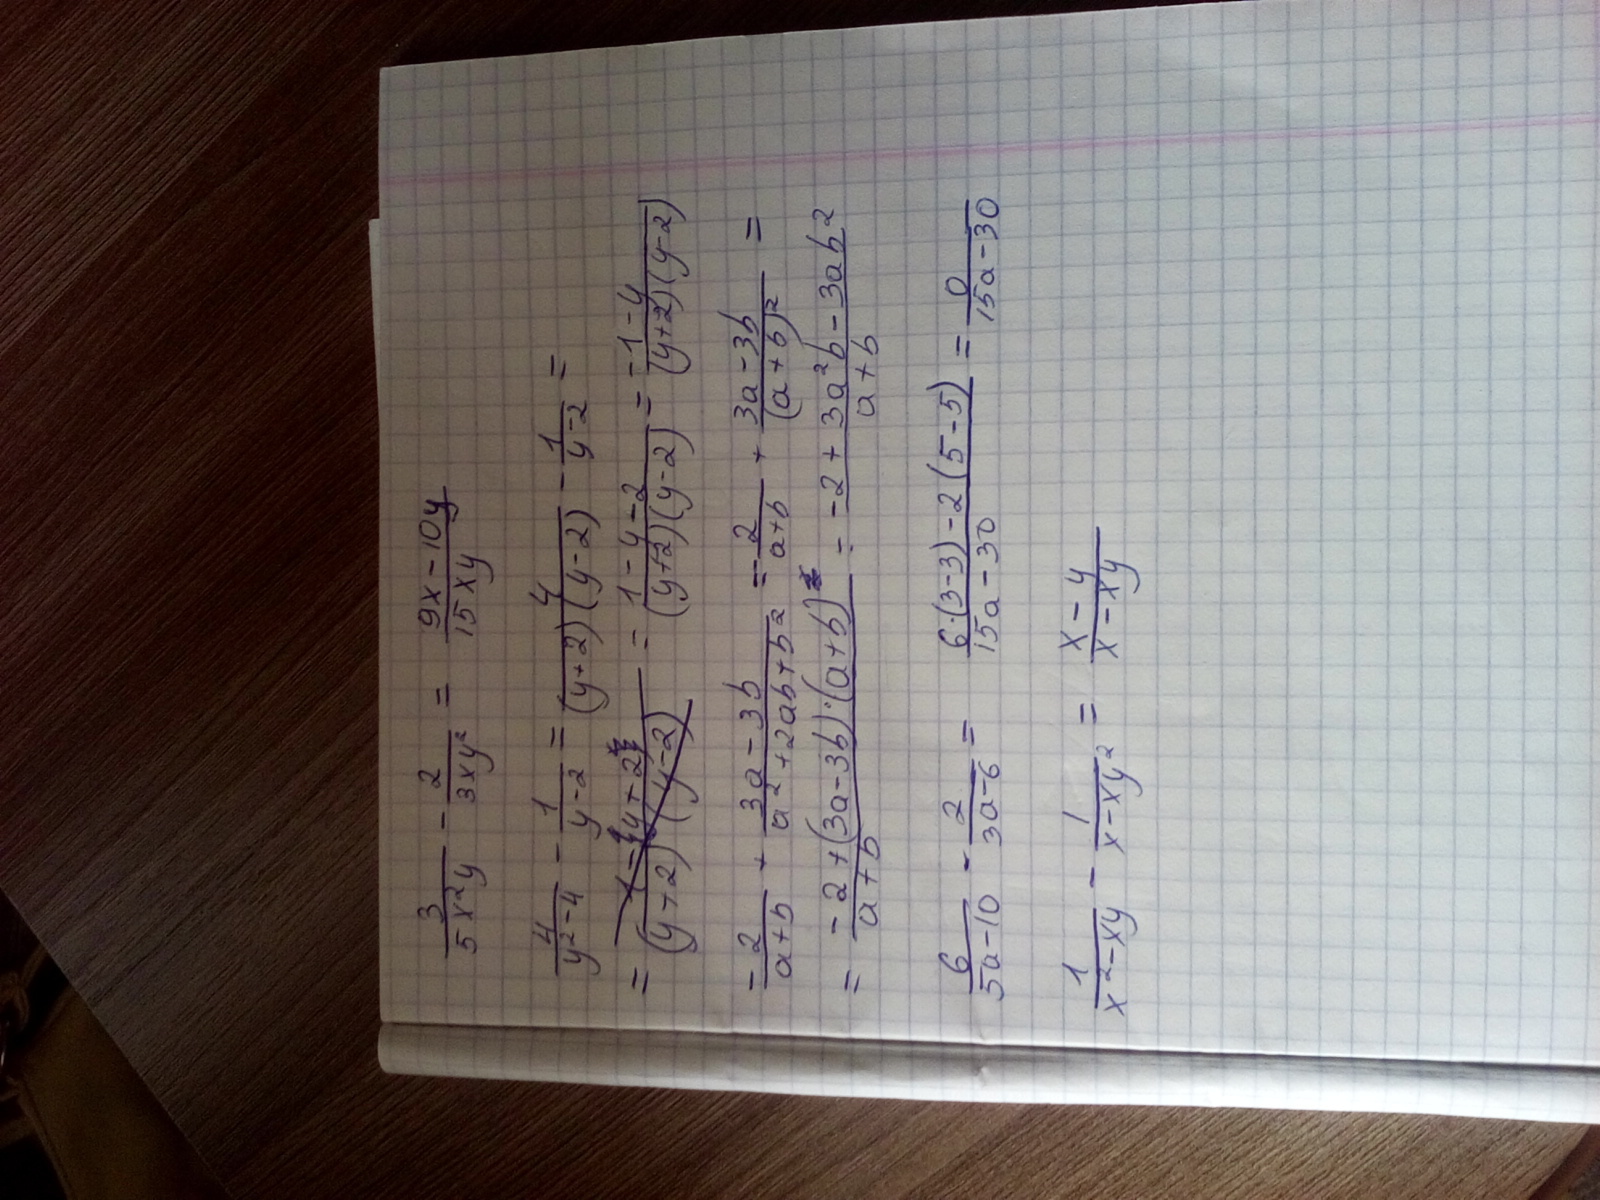 3/(5x²y) - 2/(3xy²) = (9x - 10y)/(15xy)
4/(y²-4) - 1/(y-2) = 4/((y+2)(y-2)) - 1/(y-2) =
= = (1-y-2)/((y+2)(y-2)) = (-1-y)/((y+2)(y-2))
-2/(a+b) + (3a-3b)/(a²+2ab+b²) = -2/(a+b) + (3a-3b)/(a+b)² =
= (-2+(3a-3b)·(a+b))/(a+b) = (-2+3a²b-3ab²)/(a+b)
6/(5a-10) - 2/(3a-6) = (6·(3-3)-2(5-5))/(15a-30) = 0/(15a-30)
1/(x²-xy) - 1/(x-xy²) = (x-y)/(x-xy)